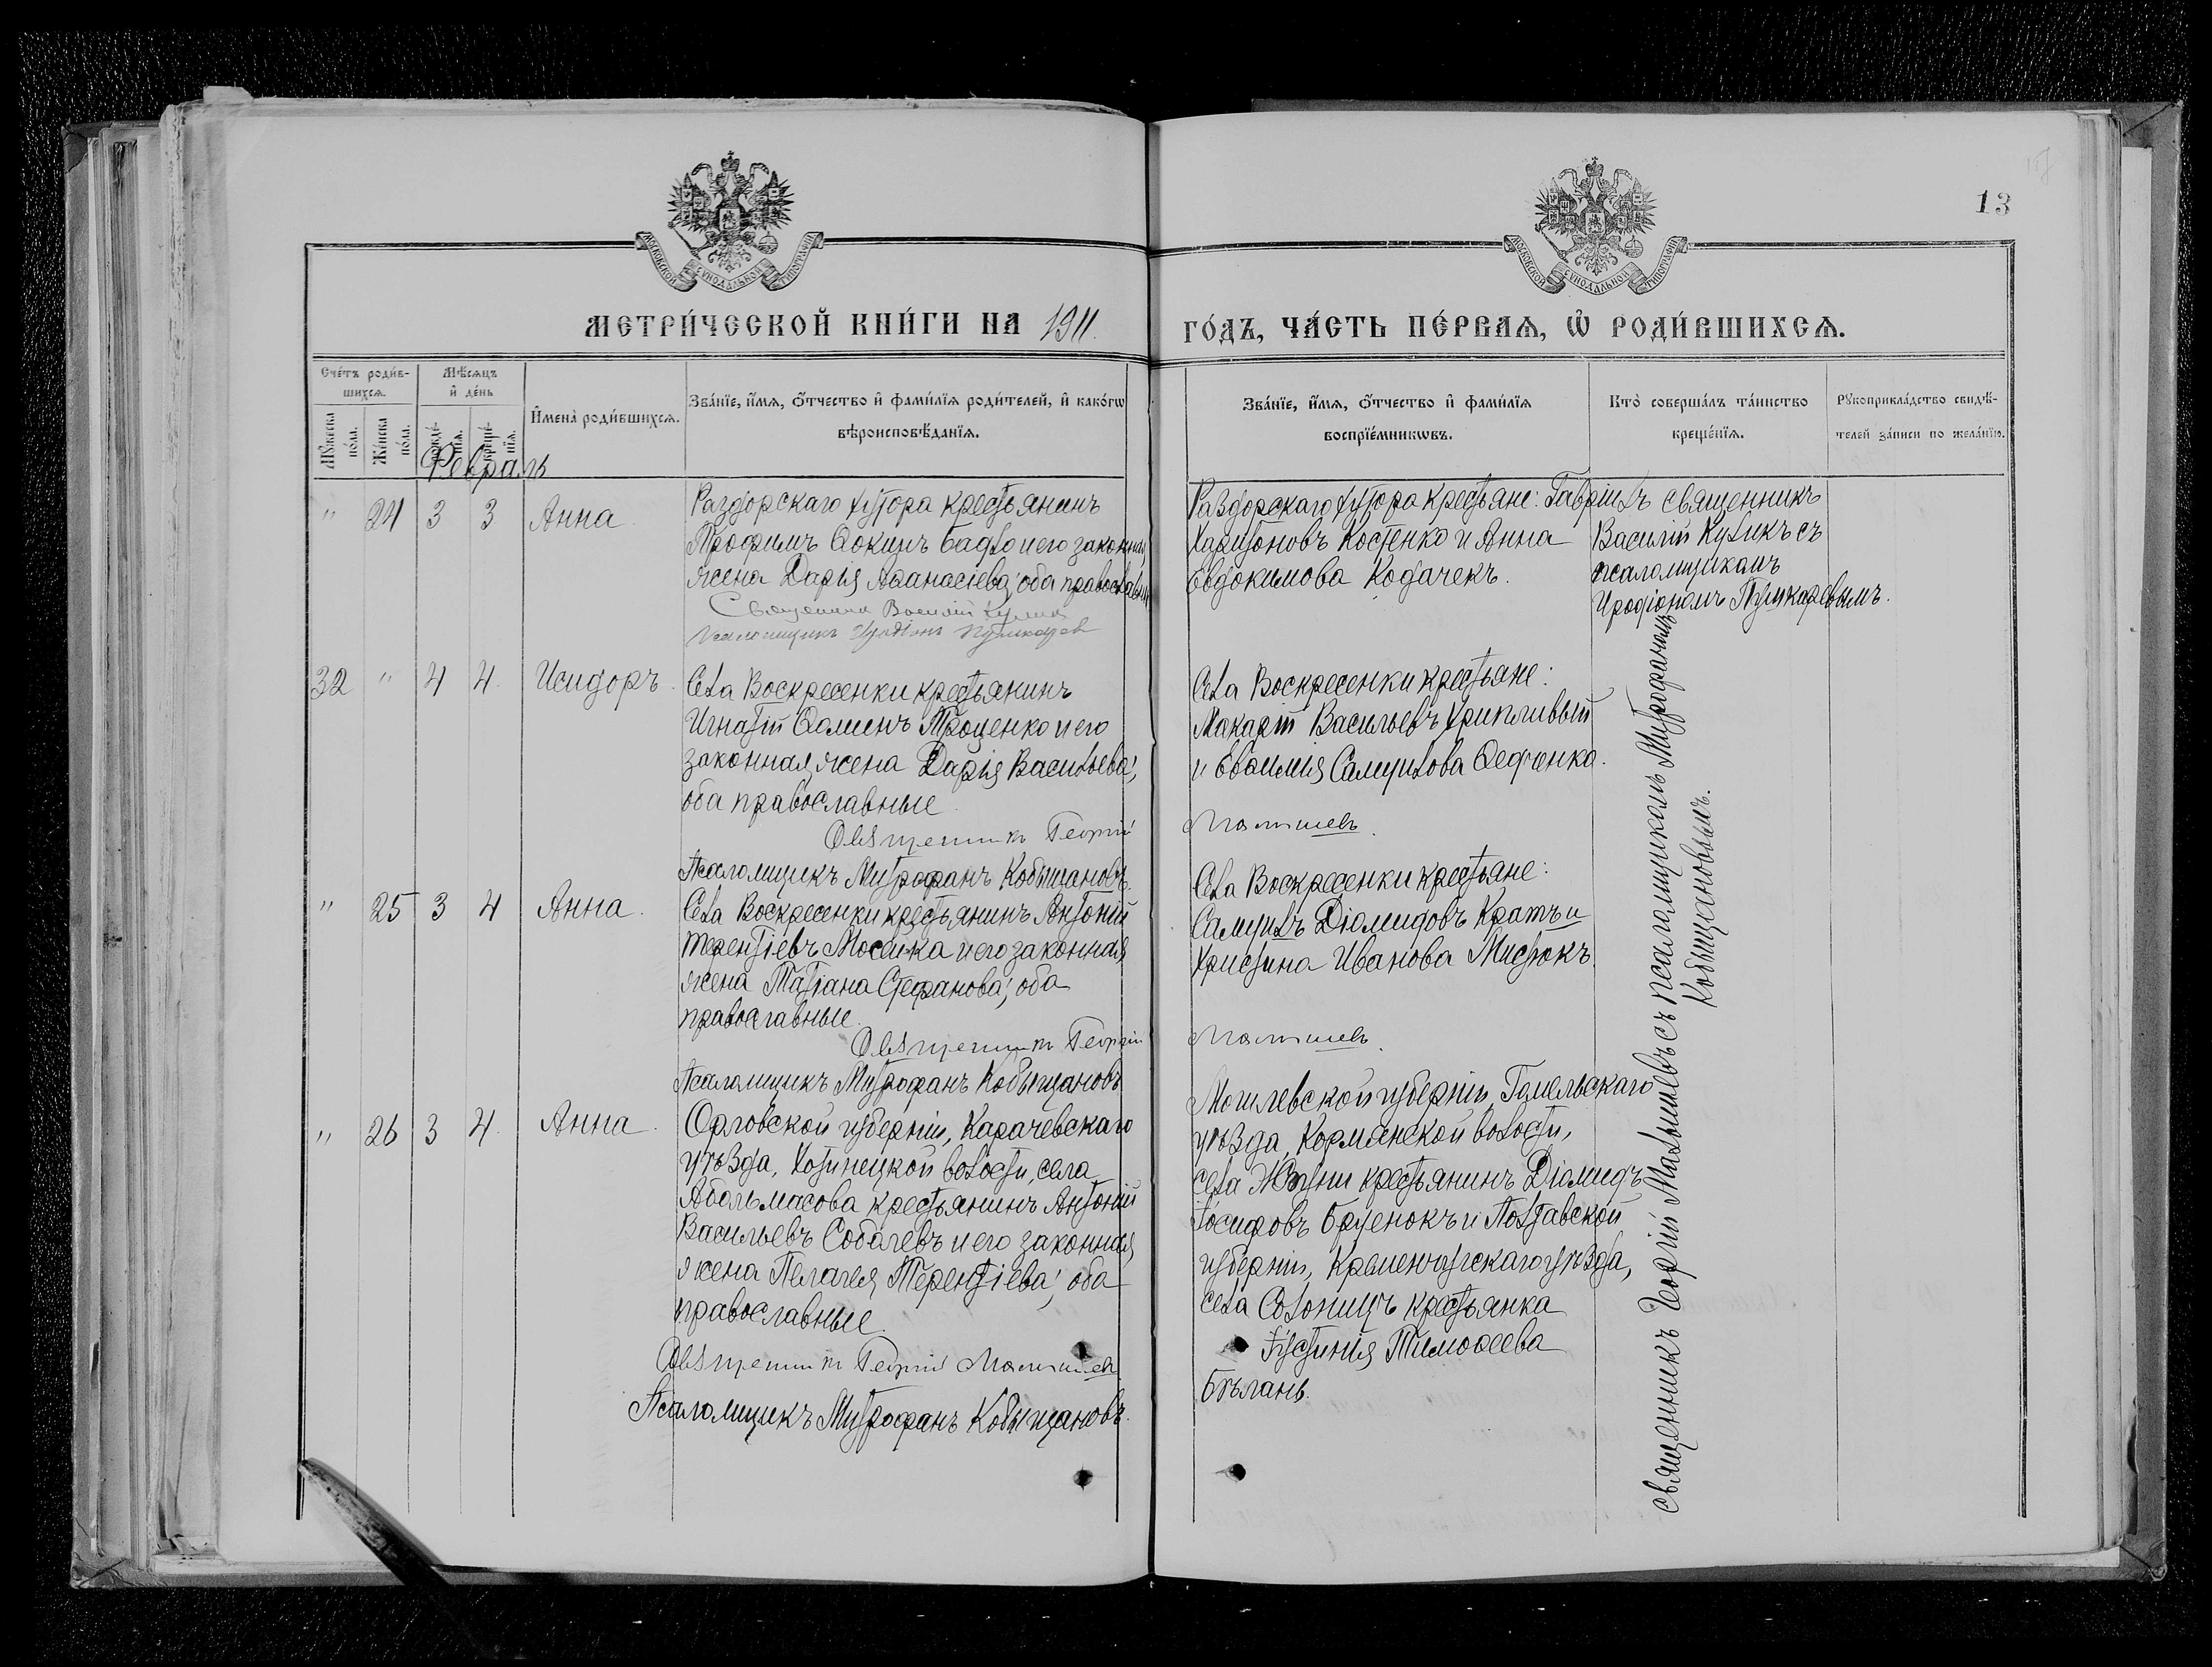 13
МОСКОВСКОЙ СѴНОДАЛЬНОЙ ТИПОГРАФІИ
МОСКОВСКОЙ СѴНОДАЛЬНОЙ ТИПОГРАФІИ
МЕТРИ́ЧЕСКОЙ КНИ́ГИ НА 1911. ГО́ДЪ, ЧА́СТЬ ПЕ́РВАѦ, Ѡ҆ РОДИ́ВШИХСѦ.
Сче́тъ роди́в-
шихсѧ.
Мꙋ́жеска по́ла.
Же́нска по́ла.
Мѣ́сѧцъ
и҆ де́нь
рожде́-
нїѧ.
креще́-
нїѧ.
И҆мена̀ роди́вшихсѧ.
Зва́нїе, и҆́мѧ, ѻ҆́тчество и҆ фами́лїѧ роди́телей, и҆ како́гѡ
вѣроисповѣ́данїѧ.
Зва́нїе, и҆́мѧ, ѻ҆́тчество и҆ фами́лїѧ
воспрїе́мникѡвъ.
Кто̀ соверша́лъ та́инство
креще́нїѧ.
Рꙋкоприкла́дство свидѣ́-
телей за́писи по жела́нїю.
Февраль
" 24 3 3 Анна
Раздорскаго хутора крестьянинъ
Трофимъ Ѳокинъ Бадло и его законная
жена Дарія Аѳанасіева, оба православны
Священник Василий Кулик
Псаломщикъ Иродіонъ Пушкарев
Раздорскаго хутора крестьяне: Гавріилъ
Харитоновъ Костенко и Анна
Евдокимова Кодачекъ.
священникъ
Василій Куликъ съ
псаломщикомъ
Иродіономъ Пушкаревымъ.
32 " 4 4. Исидоръ.
Села Воскресенки крестьянинъ
Игнатій Ѳоминъ Троценко и его
законная жена Дарія Васильева,
оба православные
Священникъ Георгій Малышевъ.
Псаломщикъ Митрофанъ Кобыщановъ.
Села Воскресенки крестьяне:
Макарій Васильевъ Хрипливый
и Евѳимія Самуилова Федченко.
" 25 3 4 Анна.
Села Воскресенки крестьянинъ Антоній
Терентіевъ Мосейка и его законная
жена Татіана Стефанова, оба
православные.
Священникъ Георгій Малышевъ.
Псаломщикъ Митрофанъ Кобыщановъ
Села Воскресенки крестьяне:
Самуилъ Діомидовъ Кратъ и
Христина Иванова Мистюкъ.
" 26 3 4. Анна.
Орловской губерніи, Карачевскаго
уѣзда, Хотинецкой волости, села
Абольмасова крестьянинъ Антоній
Васильевъ Соболевъ и его законная
жена Пелагея Терентіева, оба
православные.
Священникъ Георгій Малышевъ
Псаломщикъ Митрофанъ Кобыщановъ.
Могилевской губерніи, Гомельскаго
уѣзда, Кормянской волости,
села крестьянинъ Діомидъ
Іосифовъ Бруенокъ и Полтавской
губерніи, Кременчугскаго уѣзда,
села Солоницъ крестьянка
Іустинія Тимоѳеева
Бѣлань.
священникъ Георгій Малышевъ съ псаломщикомъ Митрофаномъ
Кобыщановымъ.